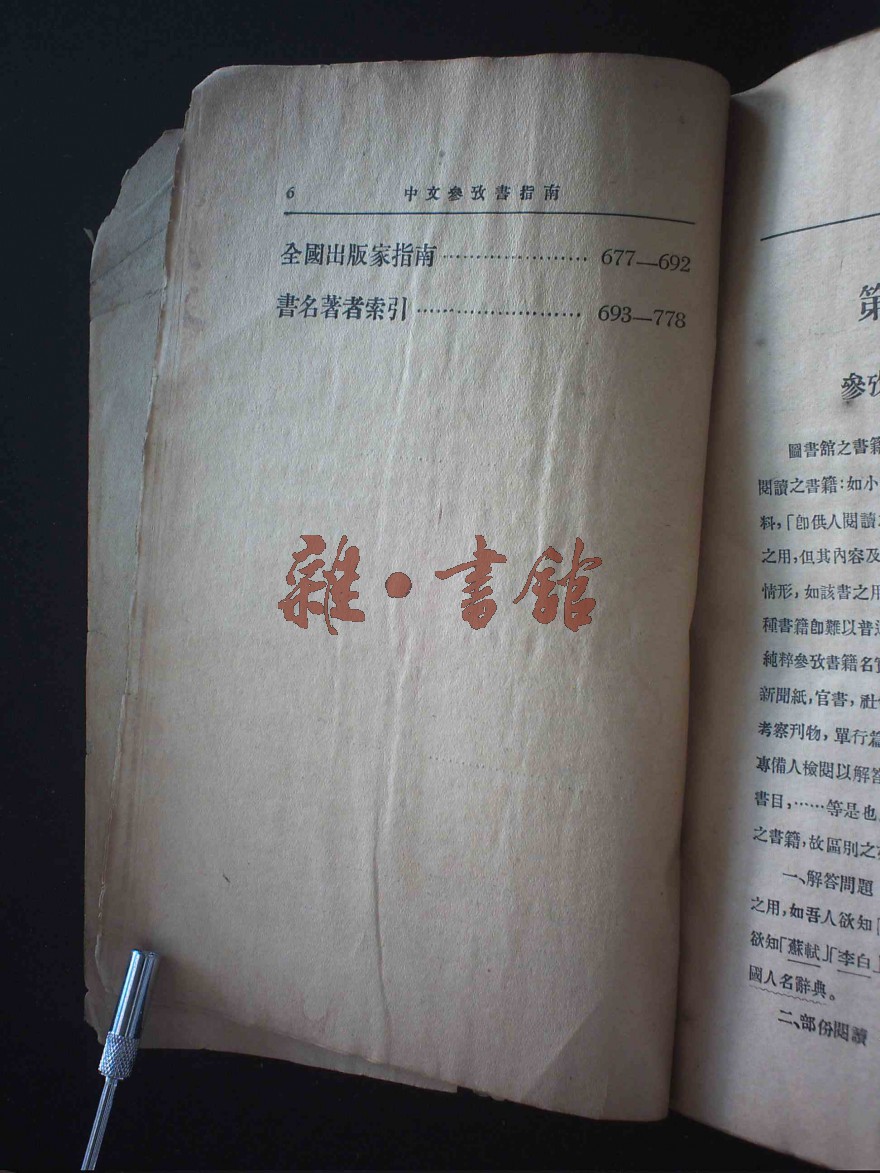 6 中文參攷書指南
全國出版家指南 ···················· 677—692
書名著者索引 ······················· 693—778
雜·書館
第
參攷
圖書館之書籍
閱讀之書籍：如小
料，「卽供人閱讀
之用，但其內容及
情形，如該書之用
種書籍卽難以普
純粹參攷書籍名
新聞紙，官書，社
考察刊物，單行
專備人檢閱以解答
書目，……等是也
之書籍，故區別之
一、解答問題
之用，如吾人欲知「
欲知「蘇軾」「李白」
國人名辭典。
二、部份閱讀